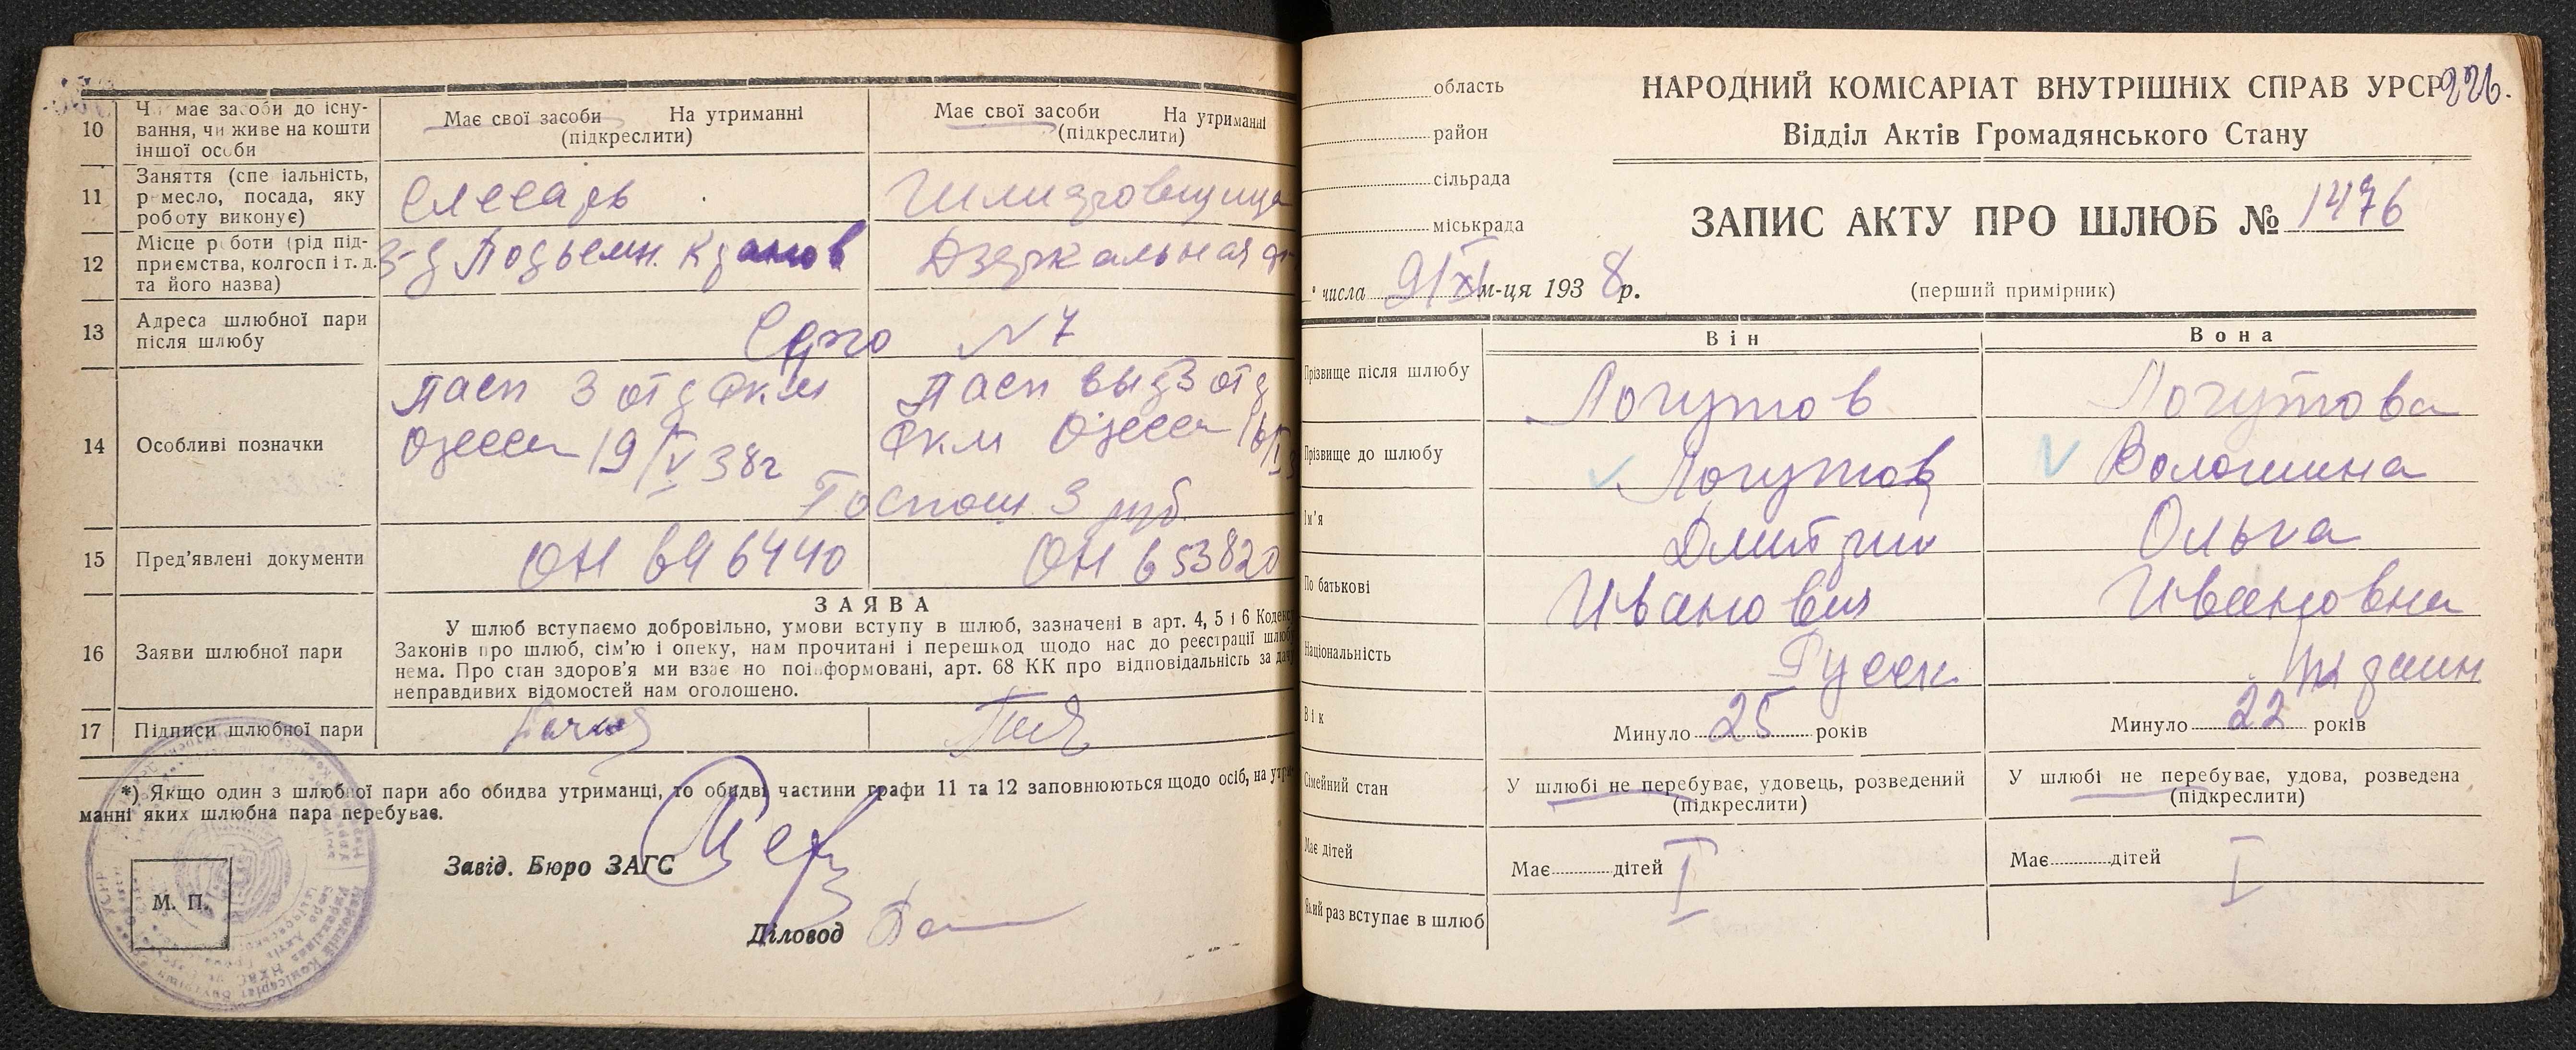 10
Чи має засоби до існу-
вання, чи живе на кошти
іншої особи
Має свої засоби На утриманні
(підкреслити)
Має свої засоби На утриманні
(підкреслити)
11
Заняття (спеціальність,
ремесло, посада, яку
роботу виконує)
Слесарь
Шлифовщица
12
Місце роботи (рід під-
приємства, колгосп і т. д.
та його назва)
З-д Подъемн. Кранов
Дзеркальная
13
Адреса шлюбної пари
після шлюбу
№ 7
14
Особливі позначки
Пасп 3 отд Ркм
Одесса 19/V 38г
Пасп выд 3 отд
Ркм Одесса 16/
Госпош 3 руб.
15
Пред'явлені документи
ОН 646440
ОН 653820
16
Заяви шлюбної пари
ЗАЯВА
У шлюб вступаємо добровільно, умови вступу в шлюб, зазначені в арт. 4, 5 і 6 Кодексу
Законів про шлюб, сім'ю і опеку, нам прочитані і перешкод щодо нас до реєстрації шлюбу
нема. Про стан здоров'я ми взаємно поінформовані, арт. 68 КК про відповідальність за дачу
неправдивих відомостей нам оголошено.
17
Підписи шлюбної пари
*) Якщо один з шлюбної пари або обидва утриманці, то обидві частини графи 11 та 12 заповнюються щодо осіб, на утри-
манні яких шлюбна пара перебуває.
Завід. Бюро ЗАГС
М. П.
Діловод
область
район
сільрада
міськрада
НАРОДНИЙ КОМІСАРІАТ ВНУТРІШНІХ СПРАВ УРСР
226.
Відділ Актів Громадянського Стану
ЗАПИС АКТУ ПРО ШЛЮБ № 1476
числа 9/XI м-ця 1938 р.
(перший примірник)
Він
Вона
Прізвище після шлюбу
Логутов
Логутова
Прізвище до шлюбу
Логутов
Волошина
Ім'я
Дмитрий
Ольга
По батькові
Иванович
Ивановна
Національність
Русск
Вік
Минуло 25 років
Минуло 22 років
Сімейний стан
У шлюбі не перебуває, удовець, розведений
(підкреслити)
У шлюбі не перебуває, удова, розведена
(підкреслити)
Має дітей
Має дітей
Має дітей
Який раз вступає в шлюб
I
I